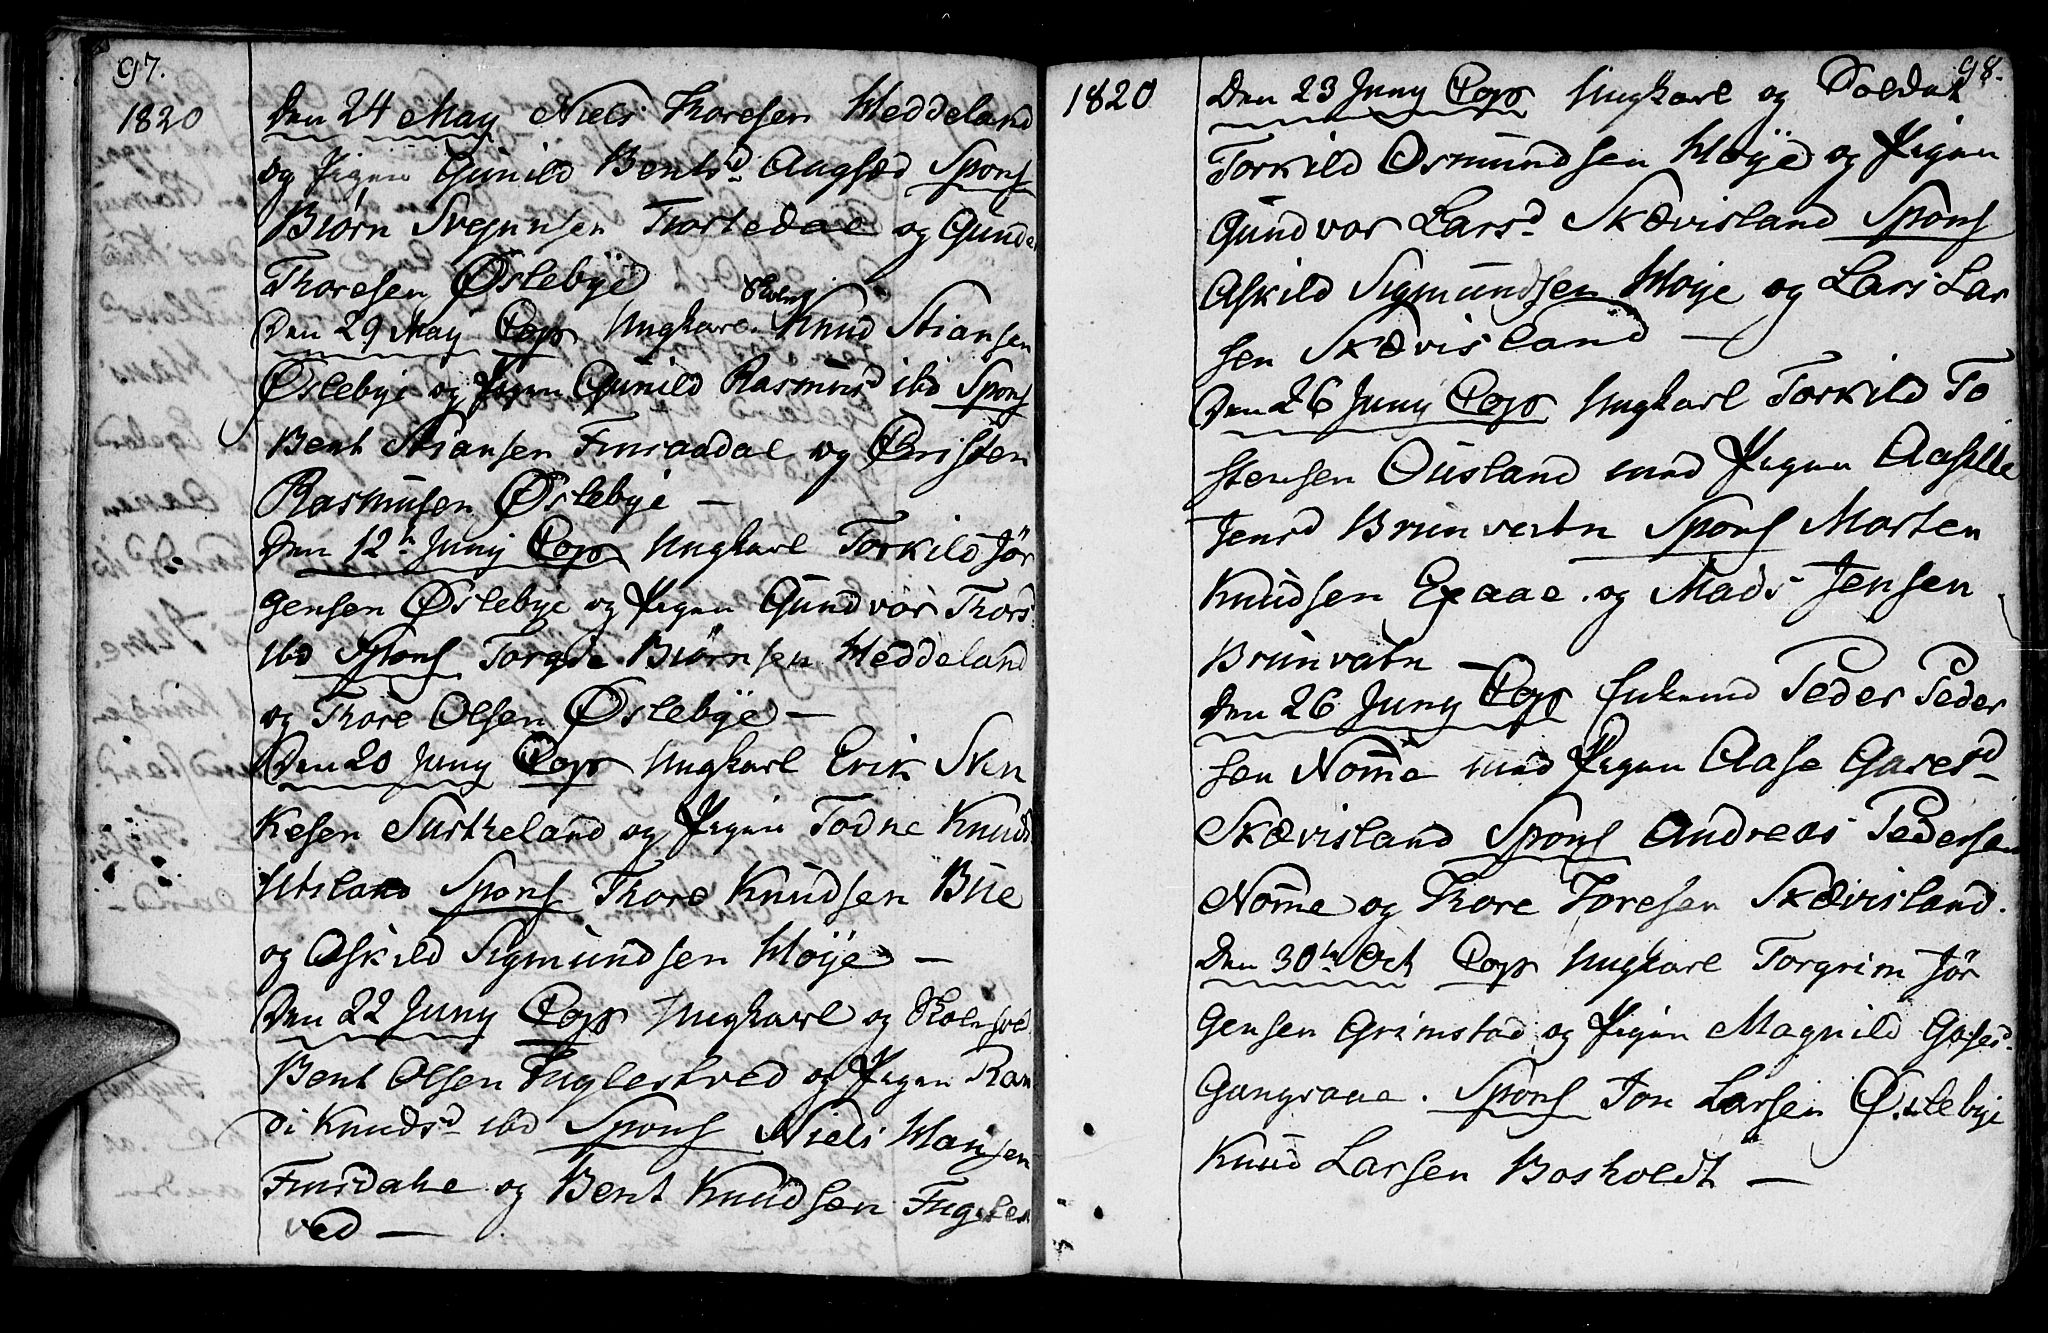 97.
1820
Den 24 May Niels Thoresen Heddeland
og Pigen Gunild Bentsd Augsed Spons
Biørn Svejnsen Tortedal og Gunder
Thoresen Øslebye
Den 29 May Cop Ungkarl Knud Stiansen
Øslebye og Pigen Gunild Rasmusd ibd Spons
Bent Stiansen Finsaadal og Cristen
Rasmusen Øslebye —
Den 12te Juny Cop Ungkarl Torkild Jør
gensen Øslebye og Pigen Gundvor Thors
ibd Spons Torgie Biørnsen Heddeland
og Thore Olsen Øslebye —
Den 20 Juny Cop Ungkarl Erik Sven
kesen Surtheland og Pigen Todne Knuds
Utsland Spons Thore Knudsen Bue
og Askild Sigmundsen Høye —
Den 22 Juny Cop Ungkarl og
Bent Olsen Fuglestved og Pigen Ran
di Knudsd ibd Spons Niels Hansen
og Bent Knudsen Fuglest
ved —
98.
1820
Den 23 Juny Cop Ungkarl og Soldat
Torkild Osmundsen Høye og Pigen
Gundvor Larsd Skævisland Spons
Askild Sigmundsen Høye og Lars Lar
sen Skævisland —
Den 26 Juny Cop Ungkarl Torkild To
stensen Ousland med Pigen Aasille
Jensd Brunvatn Spons Morten
Knudsen Egaae og Mads Jensen
Brunvatn —
Den 26 Juny Cop Enkemd Peder Peder
sen Nome med Pigen Aase Garesd
Skævisland Spons Andreas Pedersen
Nome og Thore Toresen Skævisland.
Den 30te Oct Cop Ungkarl Torgrim Jør
gensen Grimstad og Pigen Magnild Gasesd
Gangraae. Spons Jon Larsen Øslebye
Knud Larsen Bosholdt —